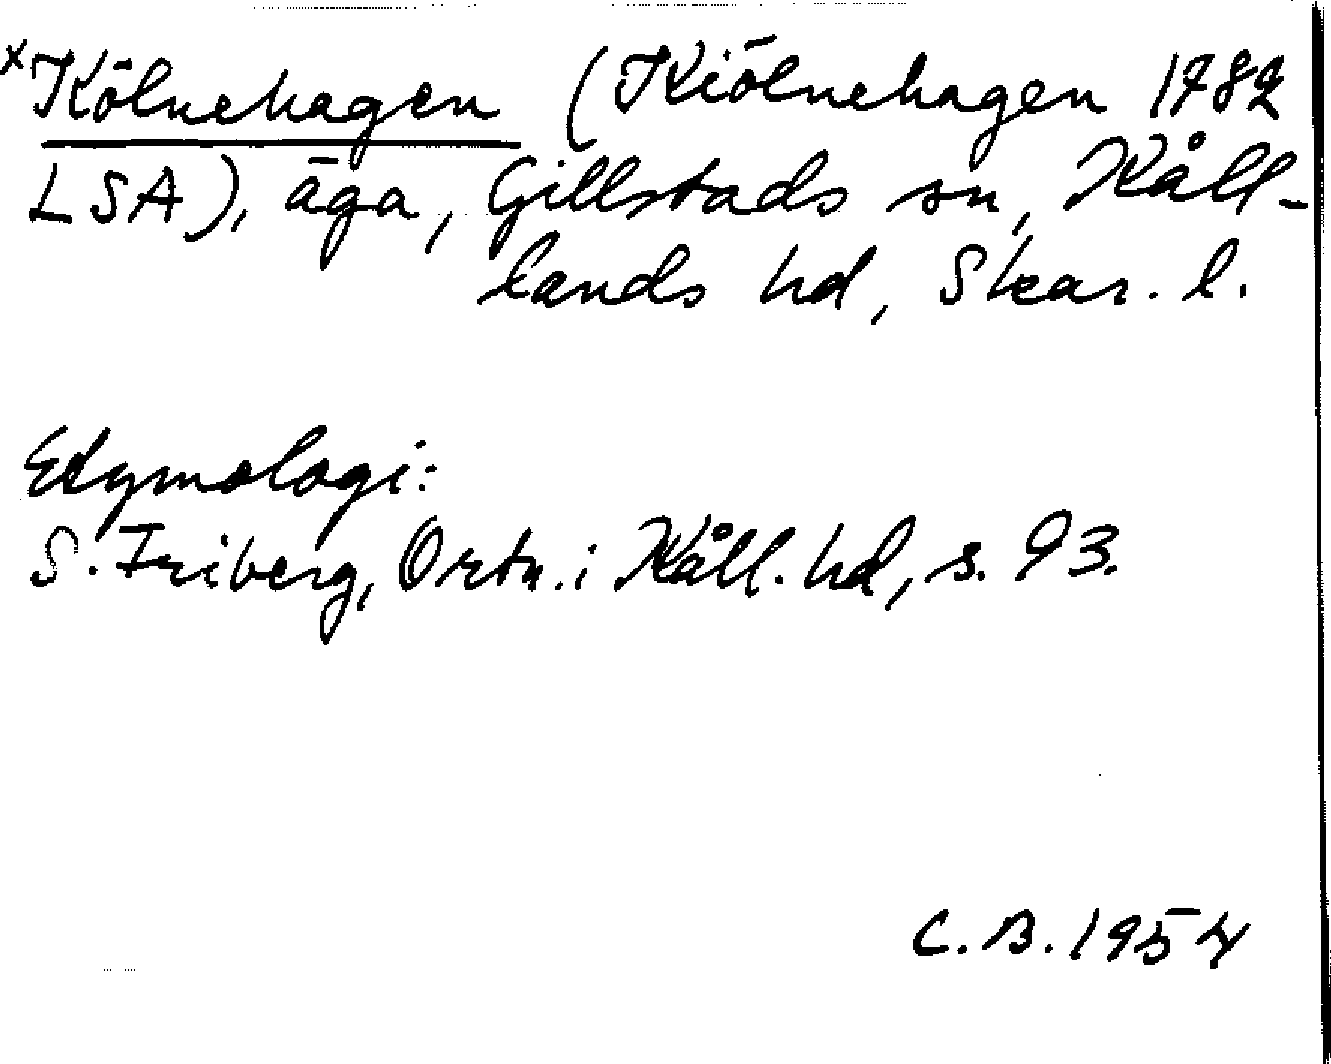 ×Kölnehagen (Kiölnehagen 1782
LSA), äga, Gillstads sn, Kåll-
lands hd, Skar. l.
Etymologi:
S. Friberg, Ortn. i Kåll. hd, s. 93.
C. B. 1954